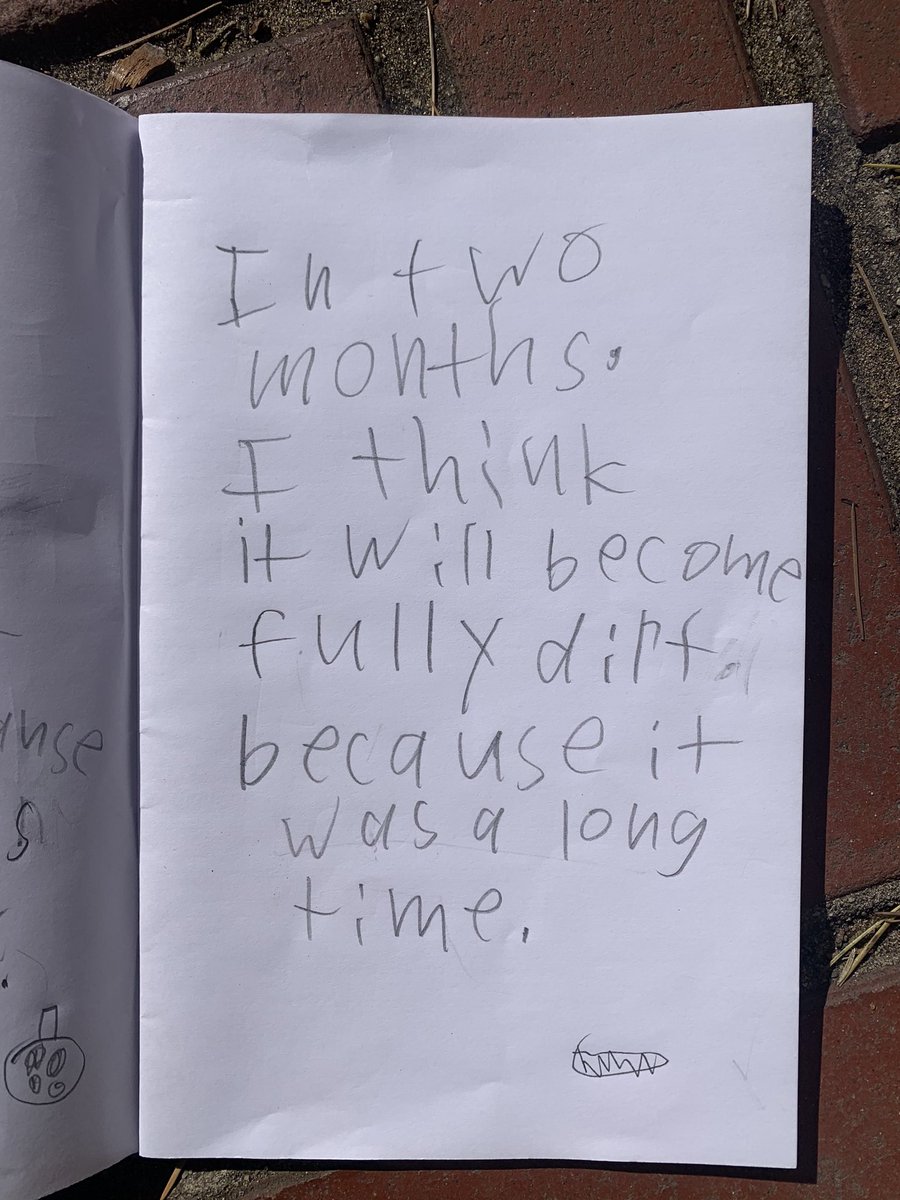 In two
months.
I think
it will become
fully dirt.
because it
was a long
time.